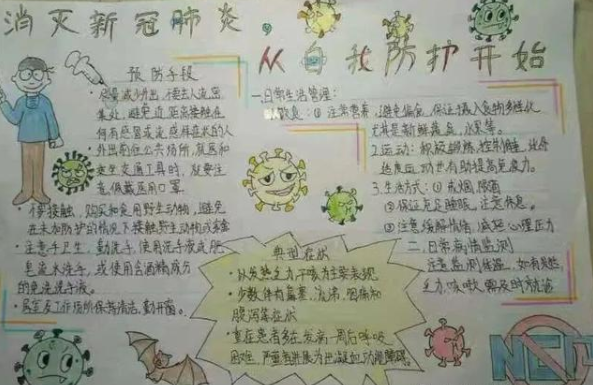 消灭新冠肺炎，
从自我防护开始
预防手段
·尽量减少外出，不要去人流密
集处，避免近距离接触任
何有感冒或流感样症状的人
·外出前往公共场所，就医和
乘坐交通工具时，要注
意佩戴医用口罩
·不要接触、购买和食用野生动物，避免
在未加防护的情况下接触野生动物或家畜
·注意手卫生，勤洗手，使用洗手液或肥
皂流水洗手，或使用含酒精成分
的免洗洗手液。
·居室及工作场所保持清洁，勤开窗。
一.日常生活管理：
饮食：① 注意营养，避免偏食，保证摄入食物多样化
尤其是新鲜蔬菜、水果等。
2.运动：
适度运动也有助提高免疫力。
3.生活方式：① 戒烟，限酒
② 保证充足睡眠，注意休息。
③ 注意缓解情绪，减轻心理压力
二.日常病情监测
注意监测体温，如有发热，
乏力，咳嗽，需及时就诊
典型症状
·以发热乏力干咳为主要表现
·少数伴有鼻塞，流涕，咽痛和
腹泻等症状
·重症患者多在发病一周后呼吸
困难，
NCP